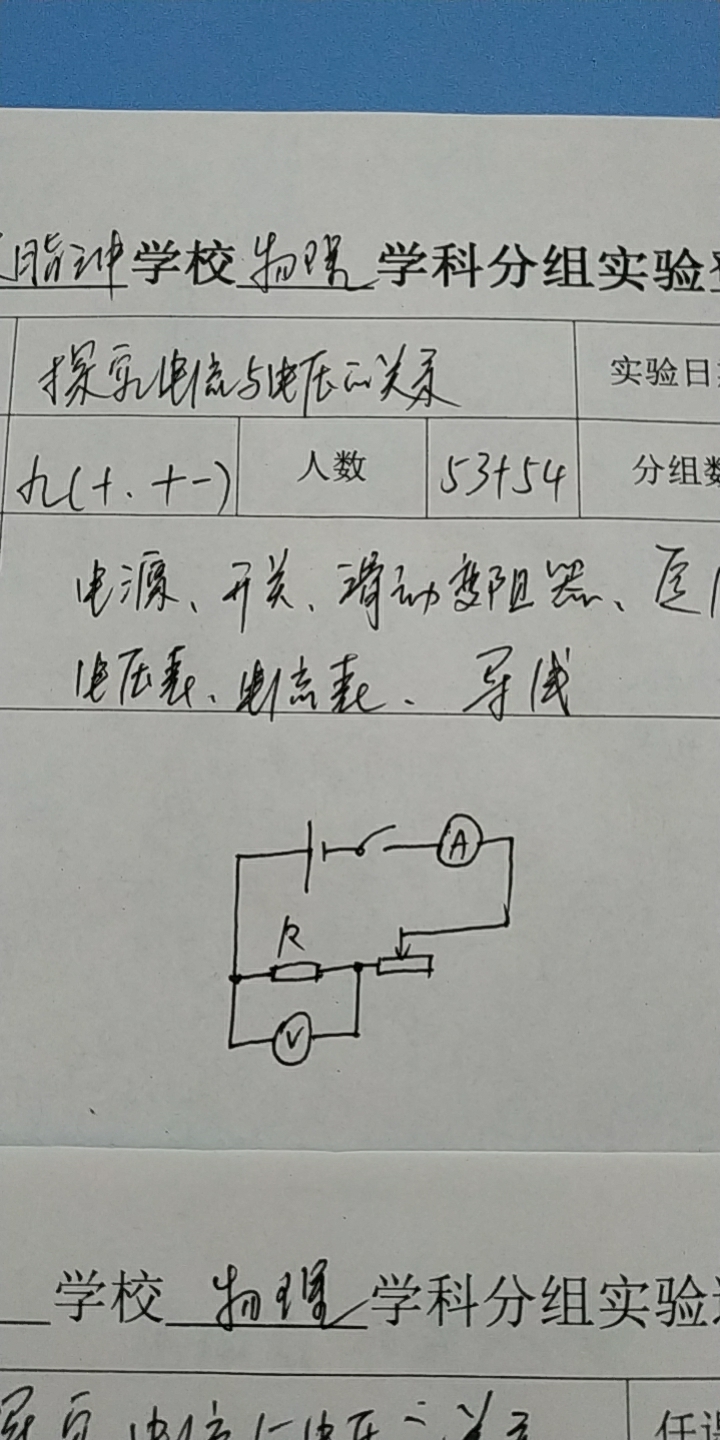 学校 物理 学科分组实验
探究电流与电压的关系 实验日
九(十、十一) 人数 53+54 分组数
电源、开关、滑动变阻器、定
电压表、电流表、导线
A
R
V
学校 物理 学科分组实验
探究电流与电压的关系 任课